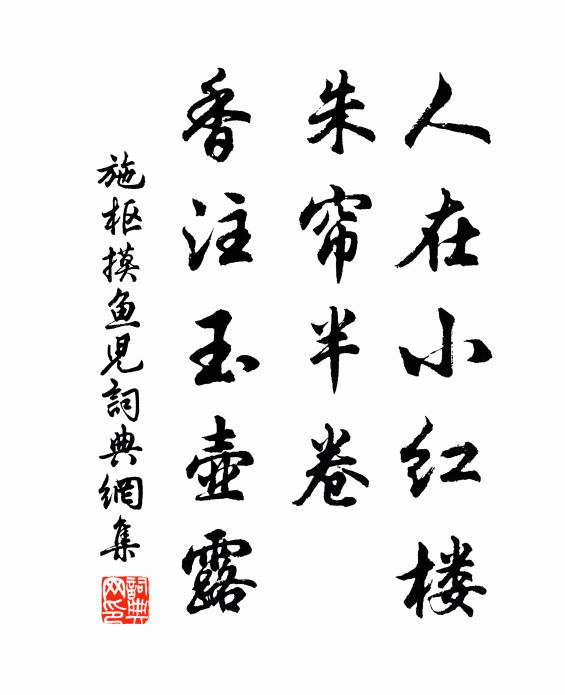 人在小红楼
朱帘半卷
香注玉壶露
施枢摸鱼児詞典網集
詞典网印